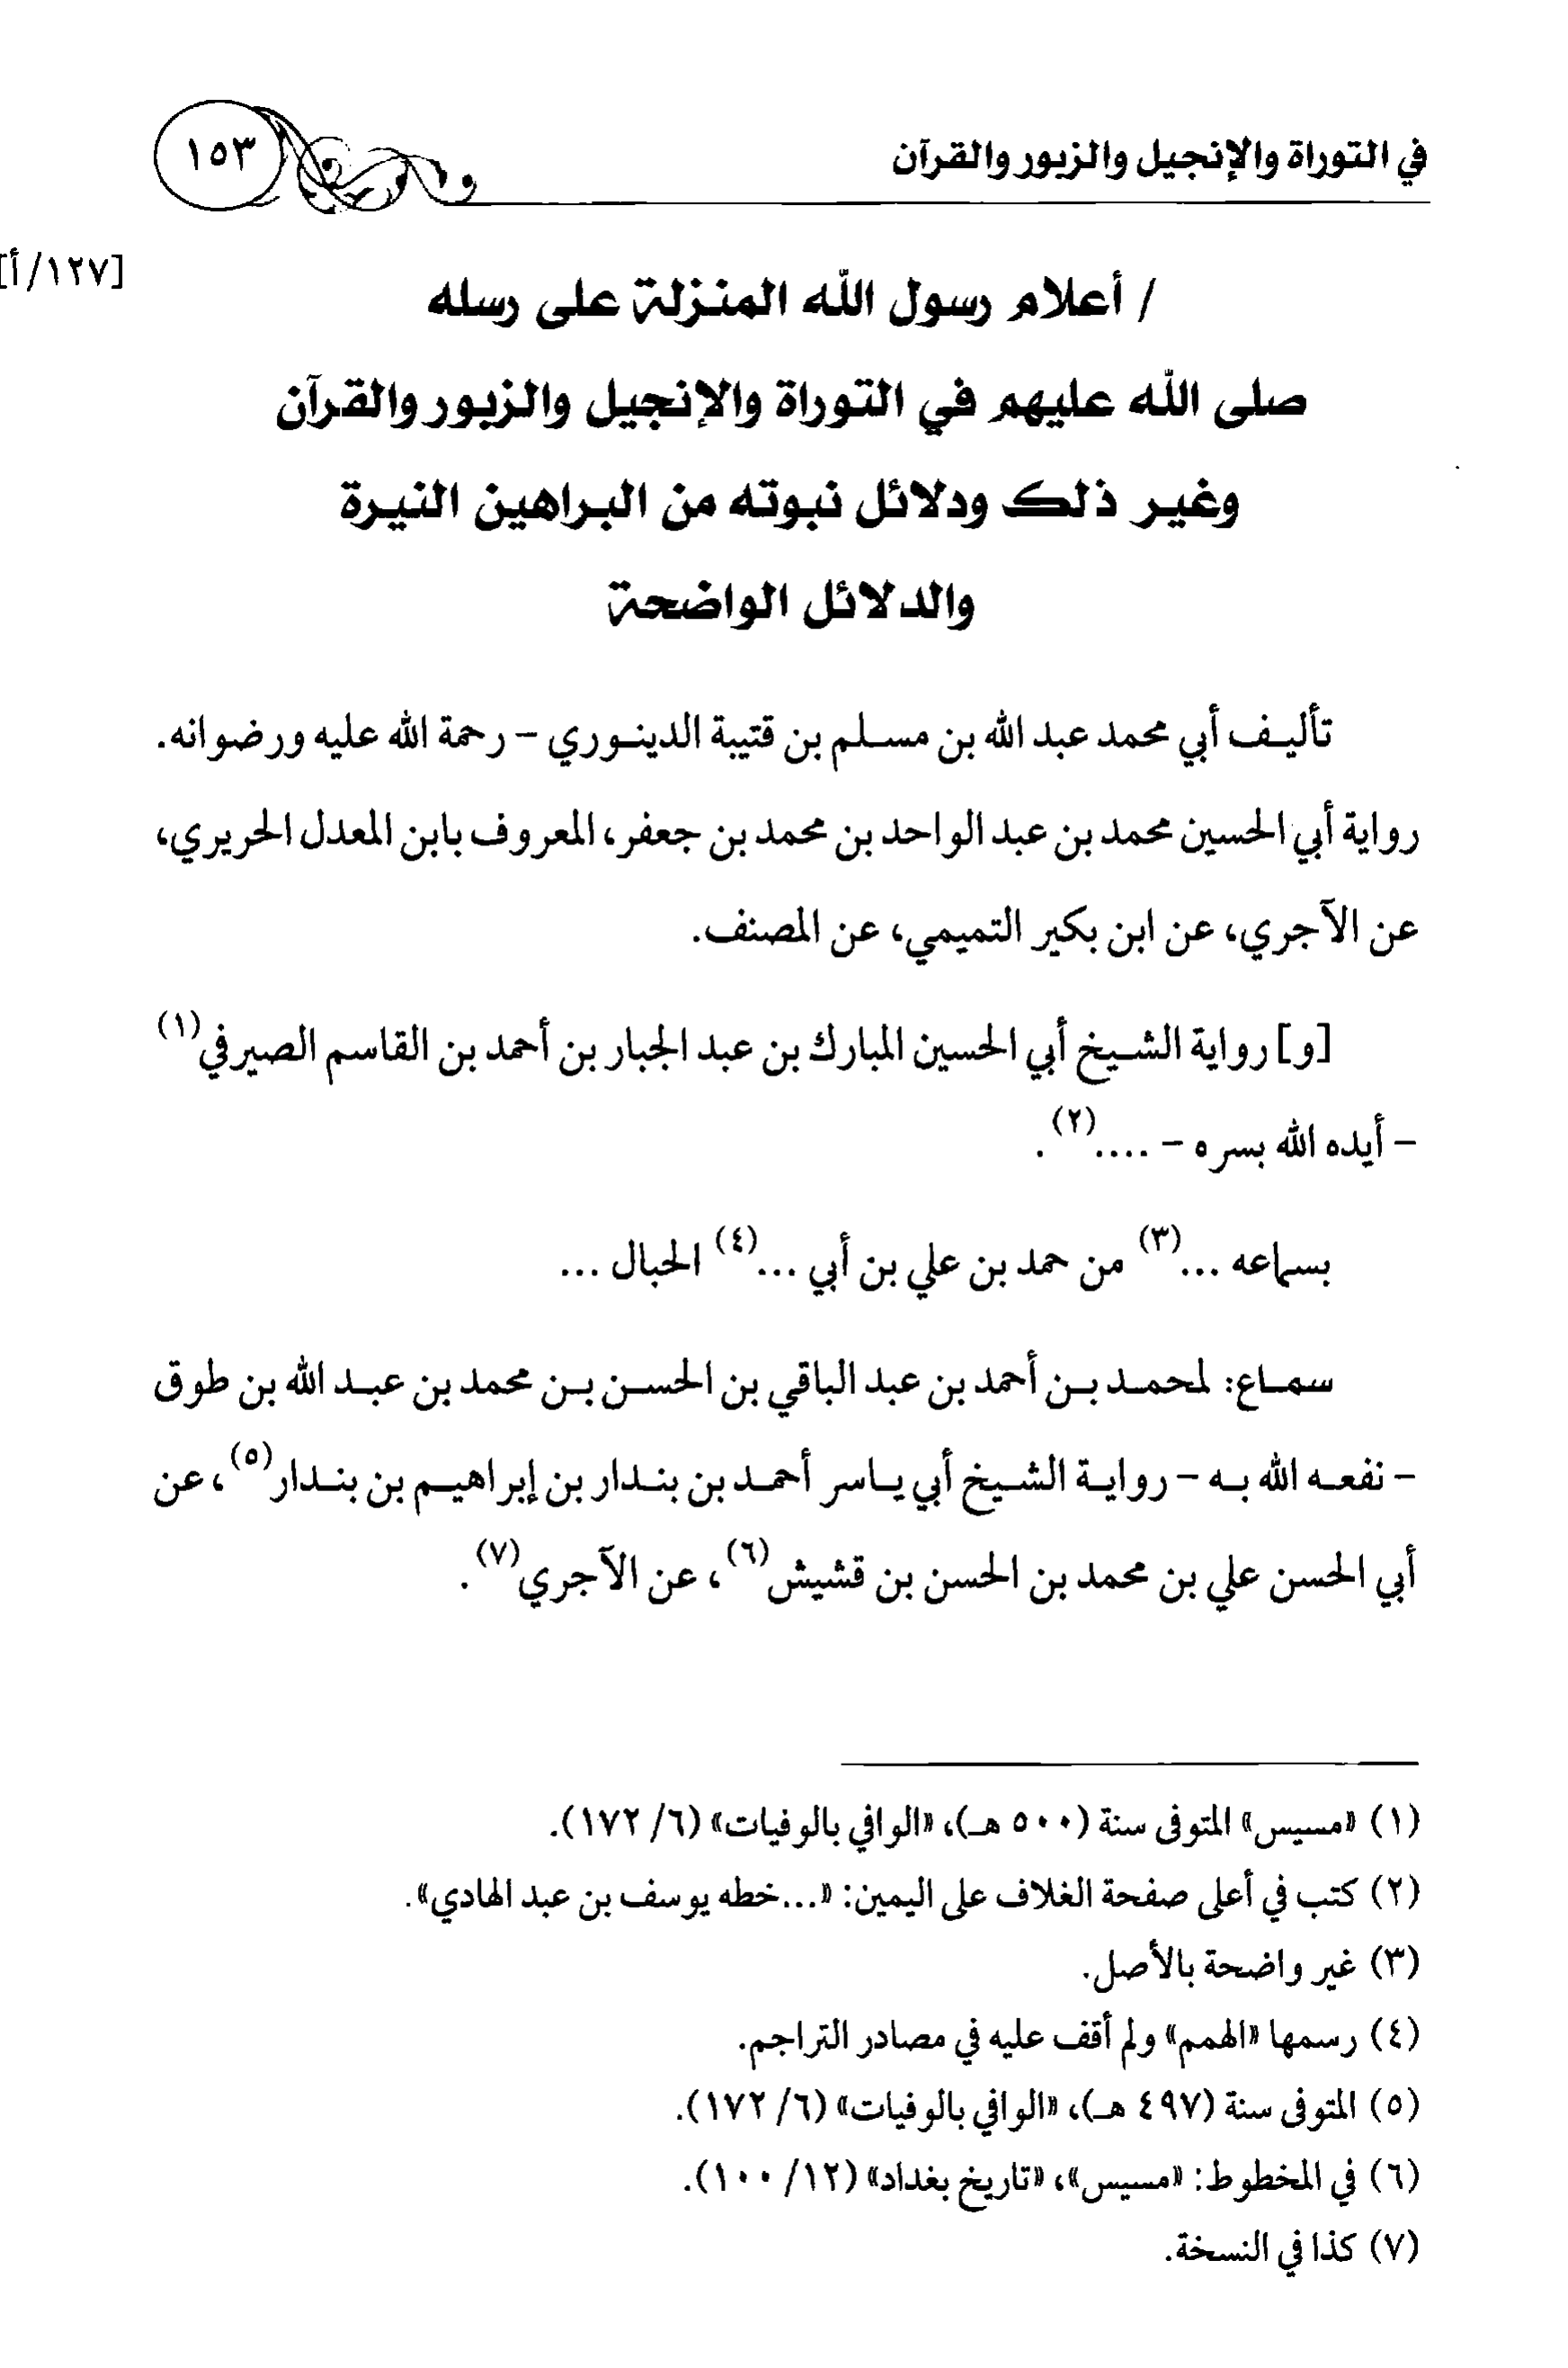 في التوراة والإنجيل والزبور والقرآن
١٥٣
[١٢٧/أ]
/ أعلام رسول الله المنزلة على رسله
صلى الله عليهم في التوراة والإنجيل والزبور والقرآن
وغير ذلك ودلائل نبوته من البراهين النيرة
والدلائل الواضحة
تأليف أبي محمد عبد الله بن مسلم بن قتيبة الدينوري – رحمة الله عليه ورضوانه.
رواية أبي الحسين محمد بن عبد الواحد بن محمد بن جعفر، المعروف بابن المعدل الحريري،
عن الآجري، عن ابن بكير التميمي، عن المصنف.
[و] رواية الشيخ أبي الحسين المبارك بن عبد الجبار بن أحمد بن القاسم الصيرفي(١)
– أيده الله بسره – ....(٢).
بسماعه ...(٣) من حمد بن علي بن أبي ...(٤) الحبال ...
سماع: لمحمد بن أحمد بن عبد الباقي بن الحسن بن محمد بن عبد الله بن طوق
– نفعه الله به – رواية الشيخ أبي ياسر أحمد بن بندار بن إبراهيم بن بندار(٥)، عن
أبي الحسن علي بن محمد بن الحسن بن قشيش(٦)، عن الآجري(٧).
(١) «مسيس» المتوفى سنة (٥٠٠ هـ)، «الوافي بالوفيات» (٦/ ١٧٢).
(٢) كتب في أعلى صفحة الغلاف على اليمين: «...خطه يوسف بن عبد الهادي».
(٣) غير واضحة بالأصل.
(٤) رسمها «الهمم» ولم أقف عليه في مصادر التراجم.
(٥) المتوفى سنة (٤٩٧ هـ)، «الوافي بالوفيات» (٦/ ١٧٢).
(٦) في المخطوط: «مسيس»، «تاريخ بغداد» (١٢/ ١٠٠).
(٧) كذا في النسخة.